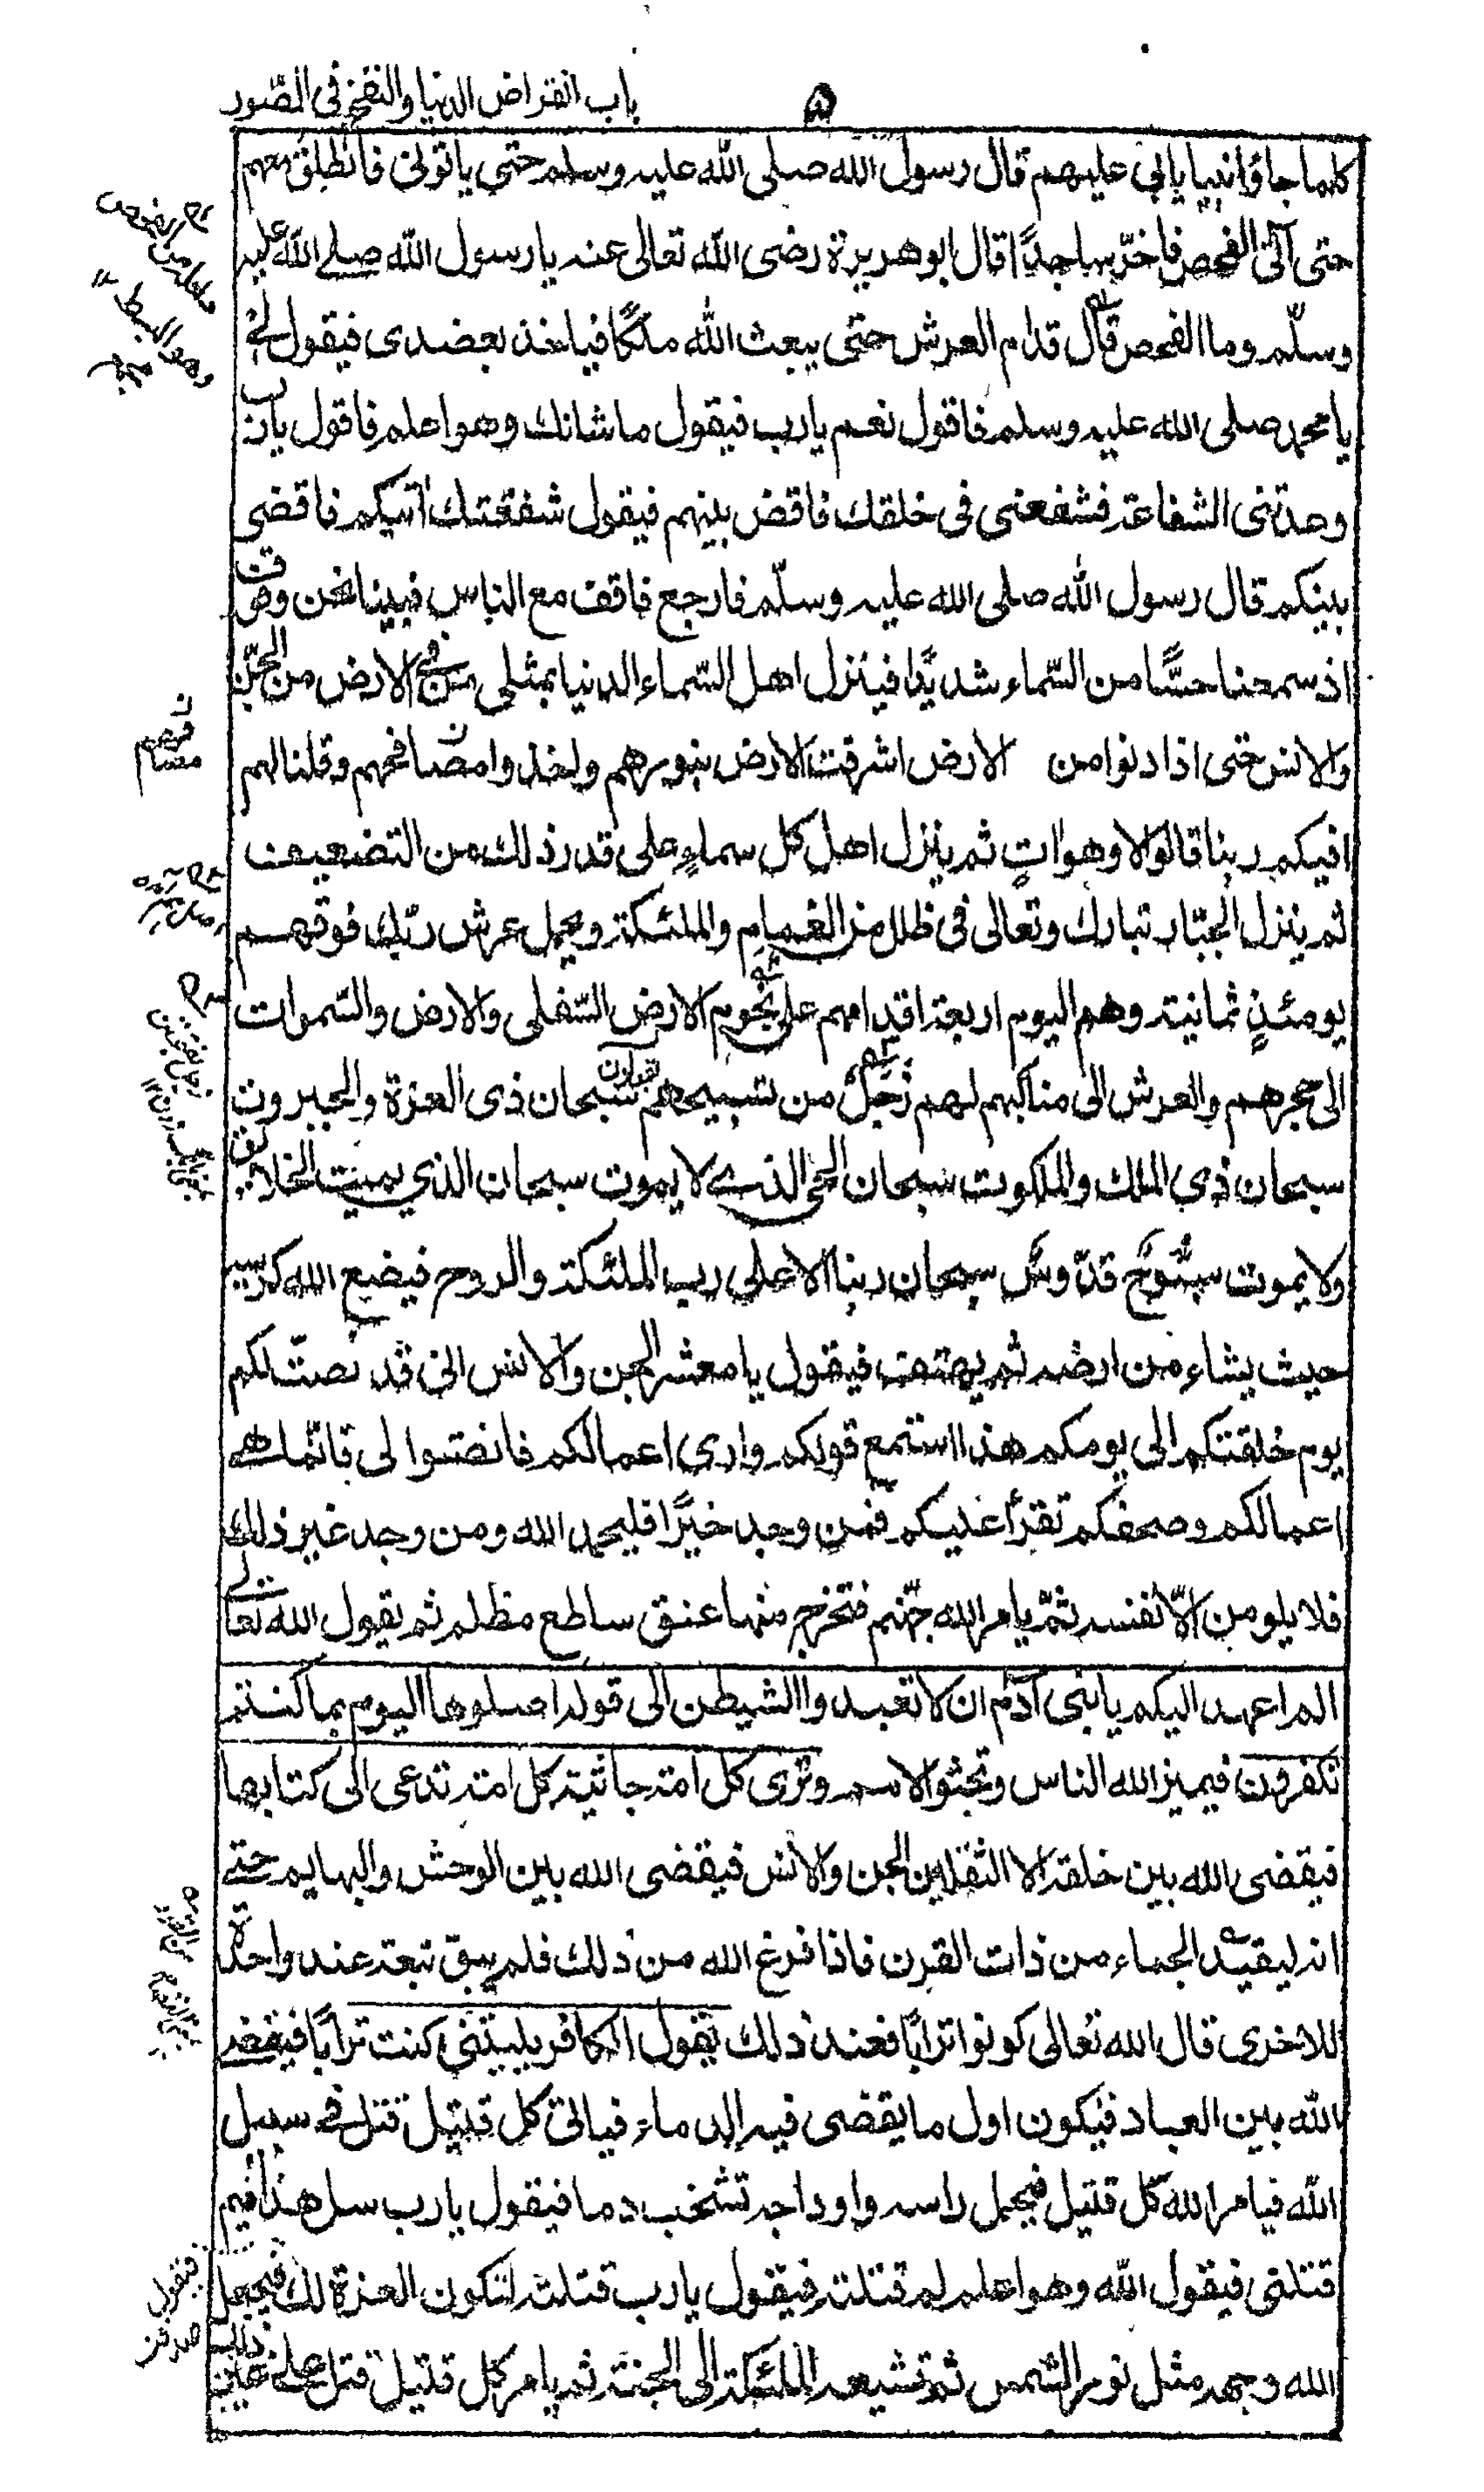 باب انقراض الدنيا والنفخ فى الصّور
۵
كلما جاؤا نبيا يابى عليهم قال رسول الله صلى الله عليه وسلم حتى ياتونى فانطلق معهم
حتى آتى الفحص فاخرّ ساجدًا قال ابو هريرة رضى الله تعالى عنه يا رسول الله صلے الله عليه
وسلّم وما الفحص قال قدام العرش حتى يبعث الله ملكًا فياخذ بعضدى فيقول لى
يا محمد صلى الله عليه وسلم فاقول نعم يا رب فيقول ما شانك وهو اعلم فاقول يا رب
وعدتنى الشفاعة فشفعنى فى خلقك فاقض بينهم فيقول شفعتك آتيكم فاقضى
بينكم قال رسول الله صلى الله عليه وسلّم فارجع فاقف مع الناس فبينا نحن وقوف
اذ سمعنا حسًّا من السّماء شديدًا فينزل اهل السّماء الدنيا بمثلى من فى الارض من الجنّ
والانس حتى اذا دنوا من الارض اشرقت الارض بنورهم واخذوا مصافهم وقلنا لهم
افيكم ربنا قالوا لا وهو اٰتٍ ثم ينزل اهل كل سماءٍ على قدر ذلك من التضعيف
ثم ينزل الجبّار تبارك وتعالى فى ظلل من الغمام والملئكة ويحمل عرش ربّك فوقهم
يومئذٍ ثمانية وهم اليوم اربعة اقدامهم على تخوم الارض السّفلى والارض والسّموات
الى حجزهم والعرش الى مناكبهم لهم زَجَلٌ من تسبيحهم يقولون سبحان ذى العزة والجبروت
سبحان ذى الملك والملكوت سبحان الحى الذے لا يموت سبحان الذي يميت الخلائق
ولا يموت سبّوحٌ قدّوسٌ سبحان ربنا الاعلى رب الملئكة والروح فيضع الله كرسيه
حيث يشاء من ارضه ثم يهتف فيقول يا معشر الجن والانس انى قد نصتّ لكم
يوم خلقتكم الى يومكم هذا استمع قولكم وارى اعمالكم فانصتوا لى فانما هے
اعمالكم وصحفكم تقرأ عليكم فمن وجد خيرًا فليحمد الله ومن وجد غير ذلك
فلا يلومن الّا نفسه ثمّ يامر الله جهنم فتخرج منها عنق ساطع مظلم ثم يقول الله تعالى
الم اعهد اليكم يا بنى آدم ان لا تعبدوا الشيطن الى قوله اصلوها اليوم بما كنتم
تكفرون فيميز الله الناس وتجثوا الامم وترى كل امة جاثية كل امة تدعى الى كتابها
فيقضى الله بين خلقه الا الثقلين الجن والانس فيقضى الله بين الوحش والبهايم حتى
انه ليقيد الجماء من ذات القرن فاذا فرغ الله من ذلك فلم يبق تبعة عند واحدة
للاخرى قال الله تعالى كونوا ترابًا فعند ذلك يقول الكافر يليتنى كنت ترابًا فيقضى
الله بين العباد فيكون اول ما يقضى فيه الدماء فياتى كل قتيل قتل فى سبيل
الله فيامر الله كل قتيل فيحمل راسه واوداجه تشخب دما فيقول يا رب سل هذا فيم
قتلنى فيقول الله وهو اعلم لم قتلته فيقول يا رب قتلته لتكون العزة لك فيجعل
الله وجهه مثل نور الشمس ثم تشيعه الملئكة الى الجنة ثم يامر كل قتيل قتل على غير
فيقول